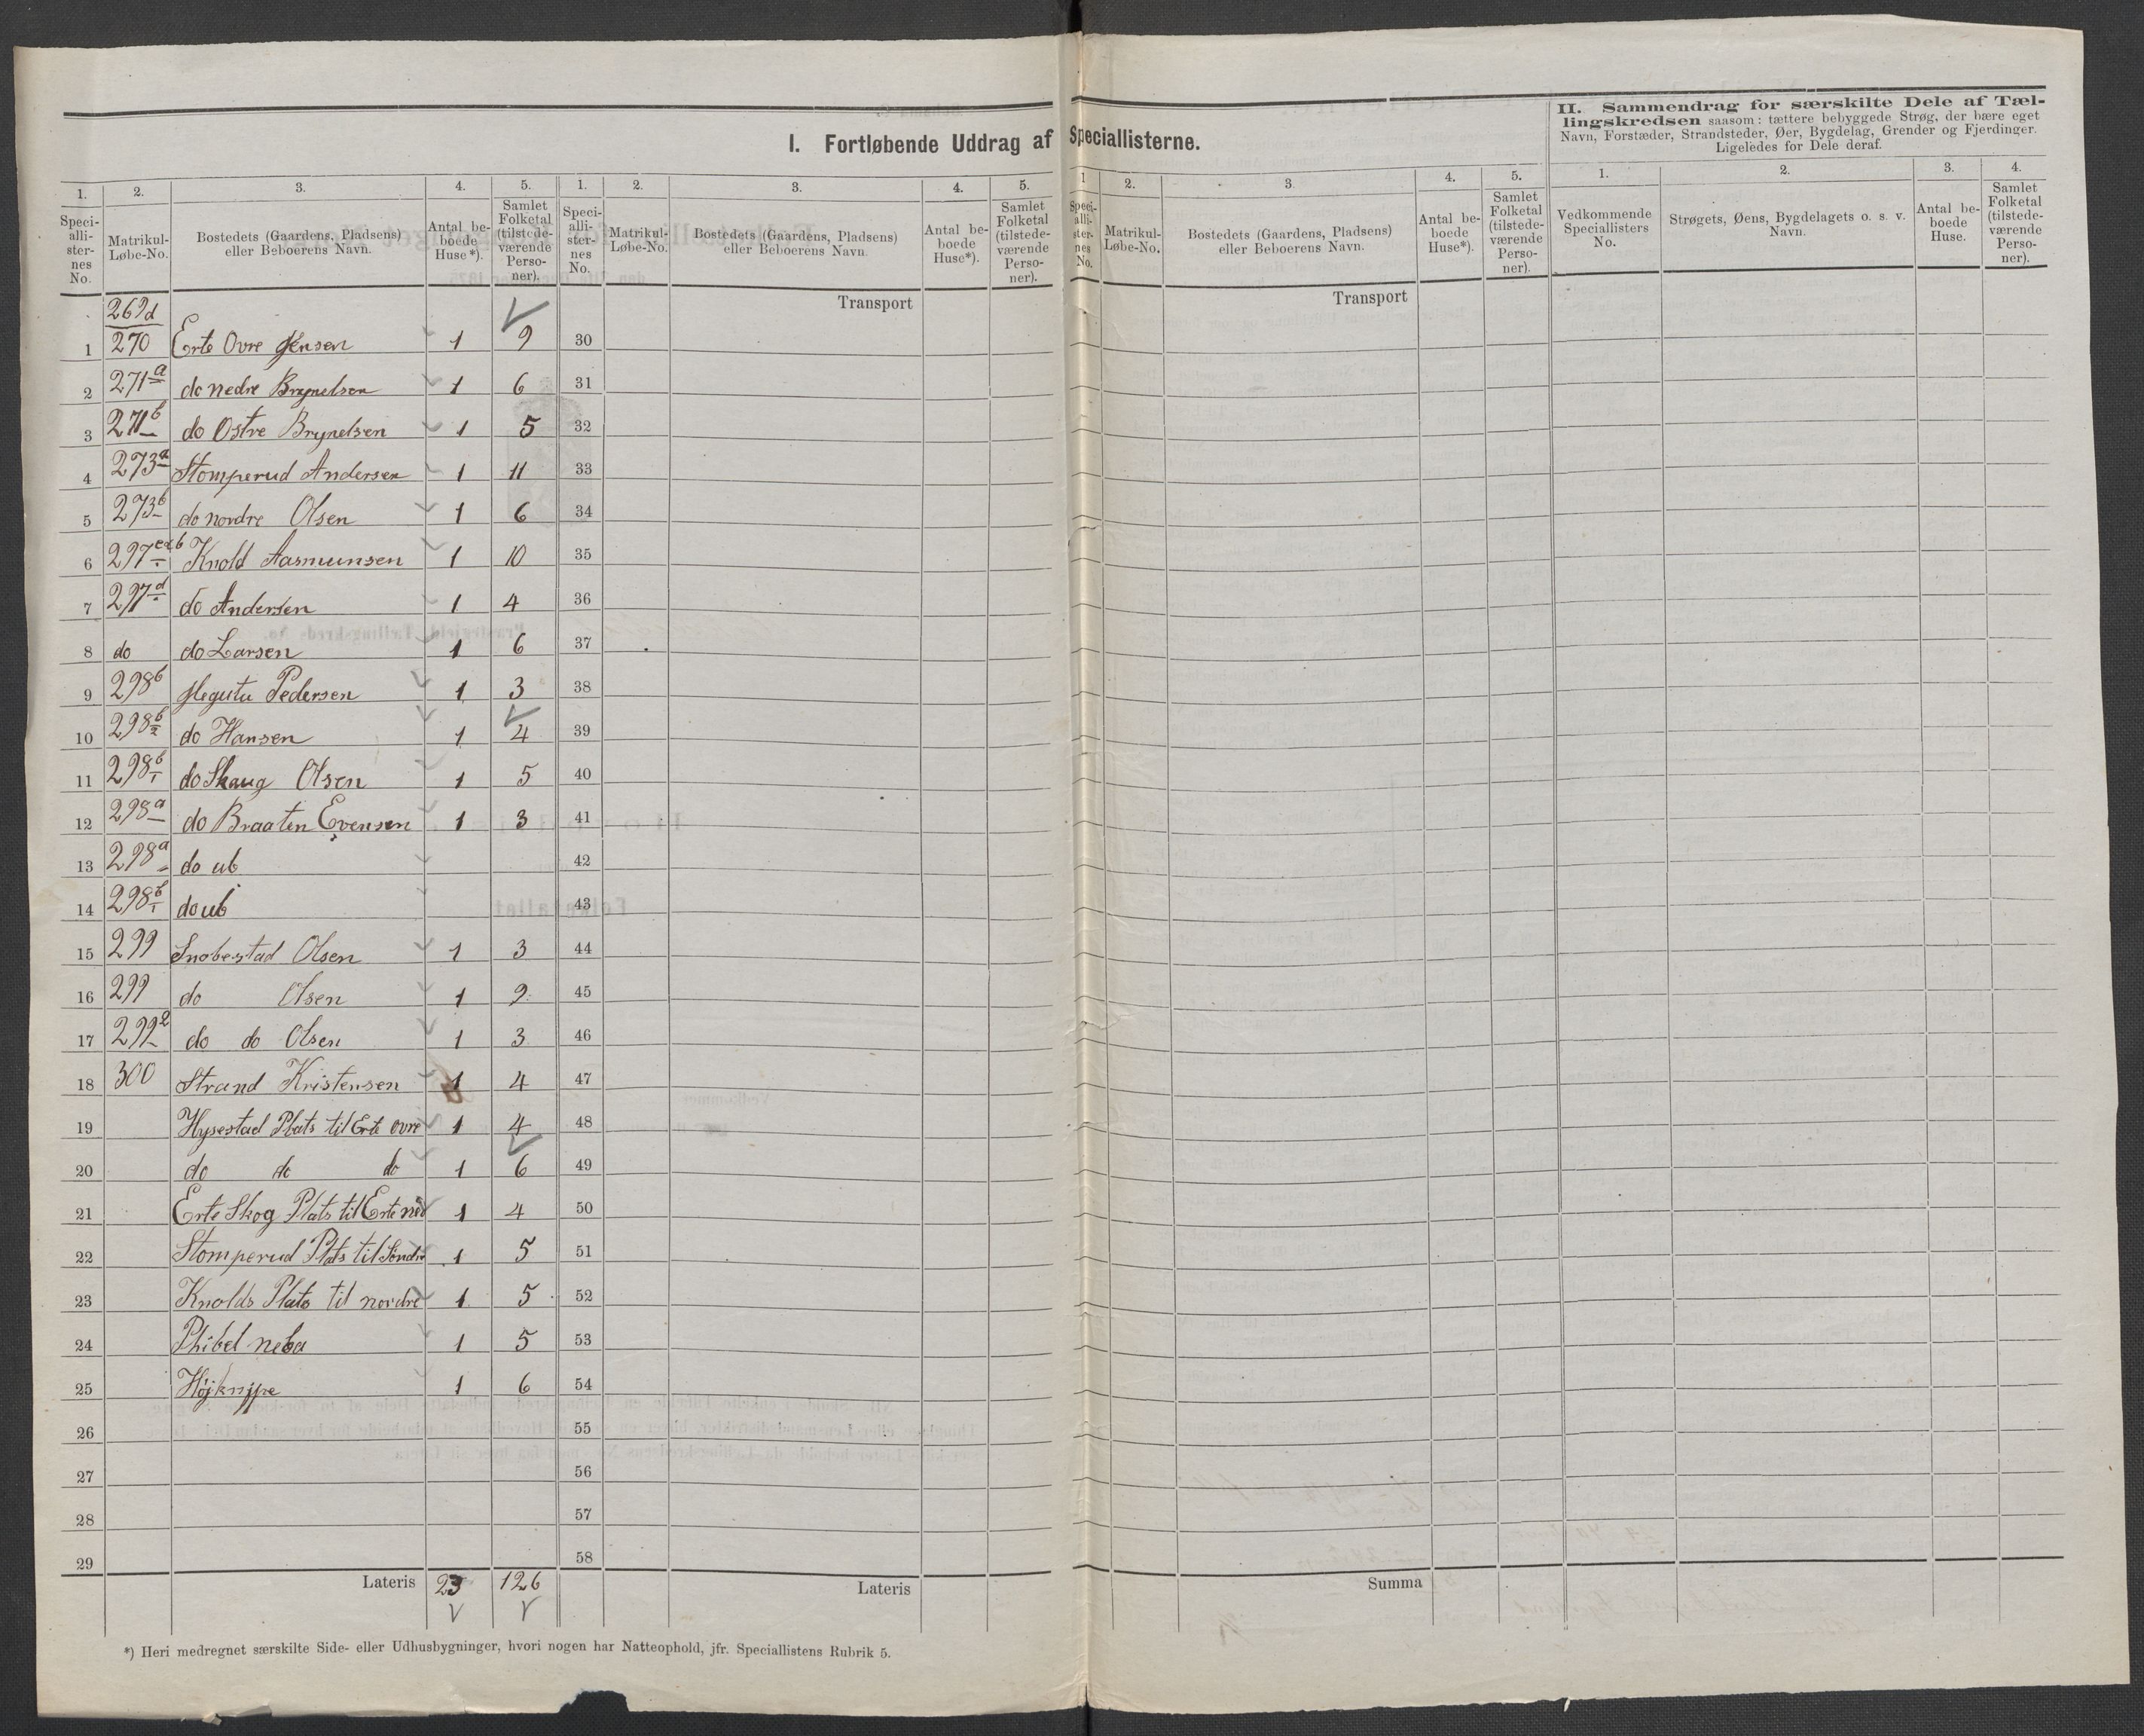 I. Fortløbende Uddrag af Speciallisterne.
II. Sammendrag for særskilte Dele af Tæl-
lingskredsen saasom: tættere bebyggede Strøg, der bære eget
Navn, Forstæder, Strandsteder, Øer, Bygdelag, Grender og Fjerdinger.
Ligeledes for Dele deraf.
1. 2. 3. 4. 5. 1. 2. 3. 4. 5. 1 2. 3. 4. 5. 1. 2. 3. 4.
Speci-
alli-
ster-
nes
No.
Matrikul-
Løbe-No.
Bostedets (Gaardens, Pladsens)
eller Beboerens Navn.
Antal be-
boede
Huse*).
Samlet
Folketal
(tilstede-
værende
Perso-
ner).
Speci-
alli-
ster-
nes
No.
Matrikul-
Løbe-No.
Bostedets (Gaardens, Pladsens)
eller Beboerens Navn.
Antal be-
boede
Huse*).
Samlet
Folketal
(tilstede-
værende
Perso-
ner).
Speci-
alli-
ster-
nes
No.
Matrikul-
Løbe-No.
Bostedets (Gaardens, Pladsens)
eller Beboerens Navn.
Antal be-
boede
Huse*).
Samlet
Folketal
(tilstede-
værende
Perso-
ner).
Vedkommende
Speciallisters
No.
Strøgets, Øens, Bygdelagets o. s. v.
Navn.
Antal be-
boede
Huse.
Samlet
Folketal
(tilstede-
værende
Perso-
ner).
269d Transport Transport
1 270 Erte Ovre Jensen 1 9 30
2 271a do nedre Brynelsen 1 6 31
3 271b do Østre Brynelsen 1 5 32
4 273a Stomperud Andersen 1 11 33
5 273b do nordre Olsen 1 6 34
6 297 Knold Aasmunsen 1 10 35
7 297d do Andersen 1 4 36
8 do do Larsen 1 6 37
9 298b Pedersen 1 3 38
10 298b do Hansen 1 4 39
11 298b do Skaug Olsen 1 5 40
12 298a do Braaten Evensen 1 3 41
13 298a do ub 42
14 298b do ub 43
15 299 Snobestad Olsen 1 3 44
16 299 do Olsen 1 9 45
17 299 2 do do Olsen 1 3 46
18 300 Strand Kristensen 1 4 47
19 Hysestad Plats til Erte ovre 1 4 48
20 do do do 1 6 49
21 Erte Skog Plats til Erte ned 1 4 50
22 Stomperud Plats til Søndr 1 5 51
23 Knolds Plats til nordre 1 5 52
24 1 5 53
25 Højknippe 1 6 54
26 55
27 56
28 57
29 58
Lateris 23 126 Lateris Summa
*) Heri medregnet særskilte Side- eller Udhusbygninger, hvori nogen har Natteophold, jfr. Speciallistens Rubrik 5.